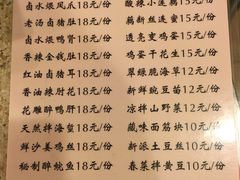 卤水煨凤爪18元/份
老汤卤猪肚18元/份
卤水煨鸭肾18元/份
香辣金钱肚18元/份
红油卤猪耳18元/份
香油辣肘花18元/份
花雕醉鸭肝18元/份
天然拌海蜇18元/份
鲜沙姜鸡丝18元/份
秘制醉鱿鱼18元/份
酸辣小莲藕15元/份
藕粉丝透蜜15元/份
透亮鸡丝15元/份
鸡蛋干花生15元/份
翠绿脆海草12元/份
新鲜豌豆苗12元/份
凉拌山野菜12元/份
藏味面筋块10元/份
新派土豆丝10元/份
春菜拌黄豆10元/份